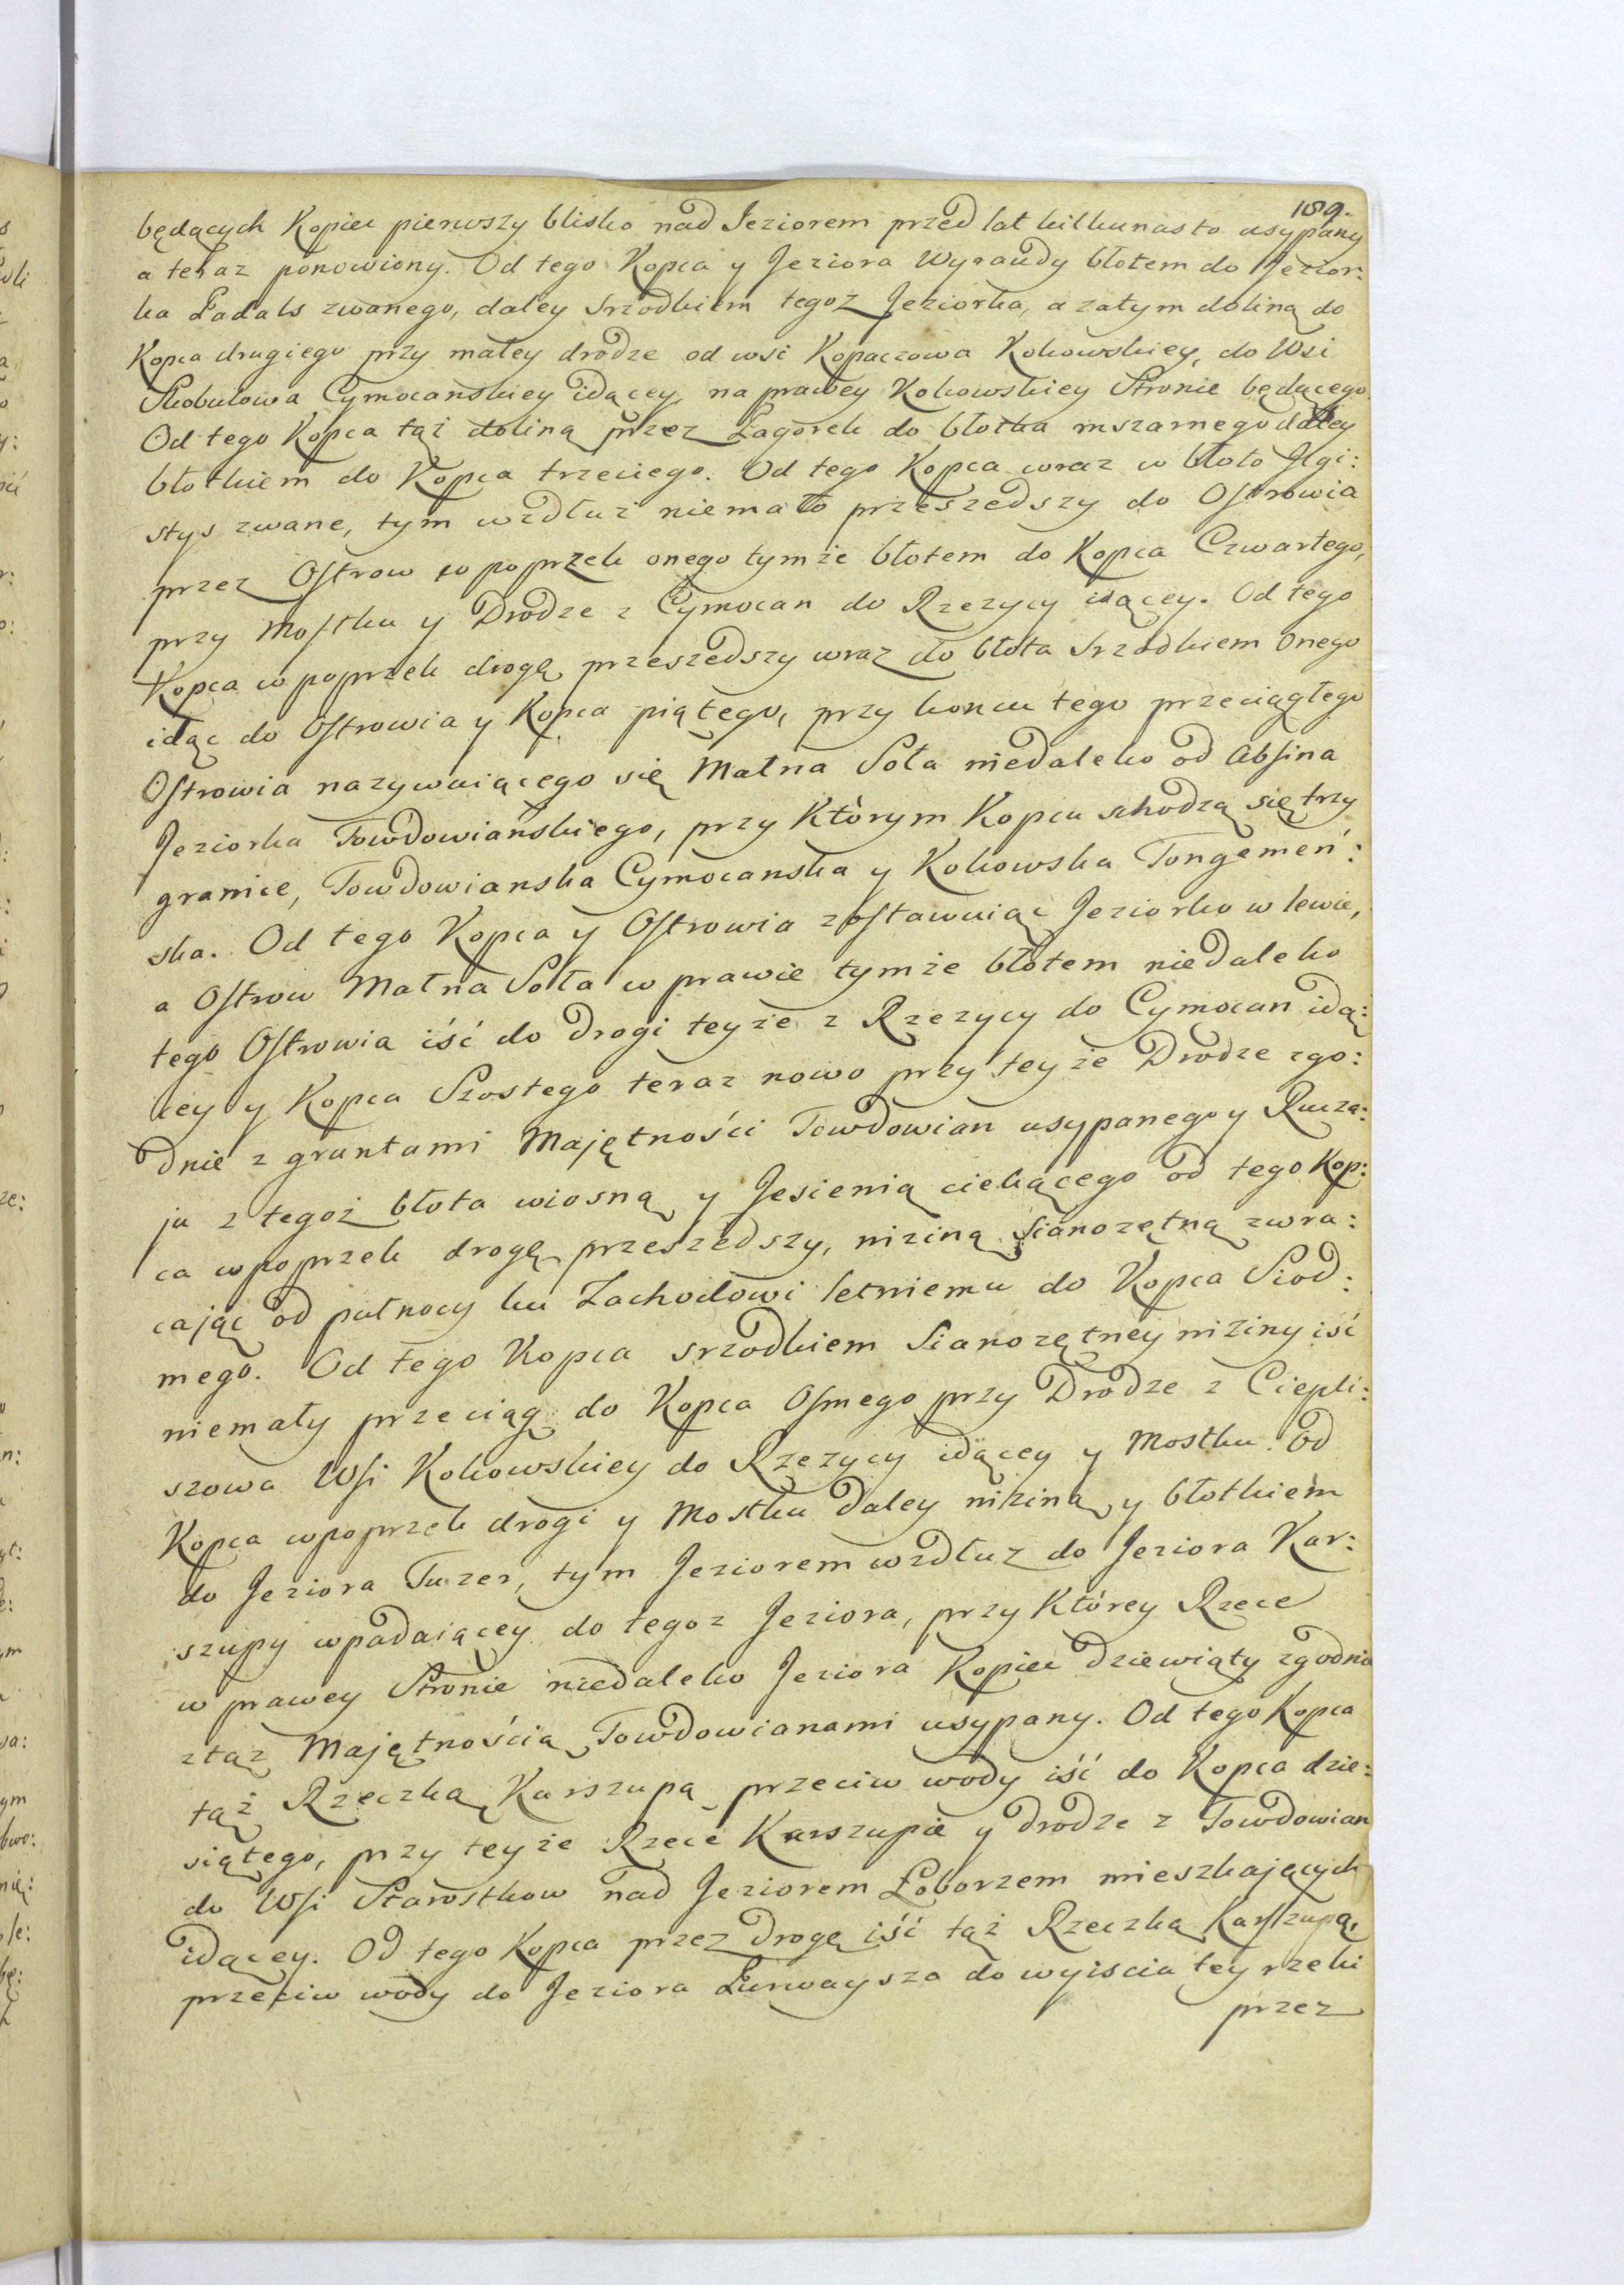 189.
będących Kopiec pierwszy blisko nad Jeziorem przed lat kilkunasto usypany
a teraz ponowiony. Od tego Kopca y Jeziora Wyraudy błotem do Jezior:
ka Ładals zwanego, daley srzodkiem tegoż Jeziorka, a zatym doliną do
Kopca drugiego przy małey drodze od wsi Kopaczowa Kokowskiey, do Wsi
Skobulowa Cymocanskiey idącey, na prawey Kokowskiey Stronie będącego.
Od tego Kopca tąż doliną przez Zagorek do błotka mszarnego daley
błotkiem do Kopca trzeciego. Od tego Kopca wraz w błoto Jlgi:
stys zwane, tym wzdłuż niemało przeszedszy do Ostrowia
przez Ostrow w poprzek onego tymże błotem do Kopca Czwartego,
przy Mostku y Drodze z Cymocan do Rzezycy idącey. Od tego
Kopca w poprzek drogę przeszedszy wraz do błota srzodkiem onego
idąc do Ostrowia y Kopca piątego, przy koncu tego przeciągłego
Ostrowia nazywaiącego się Małna Soła niedaleko od Absina
Jeziorka Towdowiańskiego, przy Którym Kopcu schodzą się trzy
granice, Towdowianska Cymocanska y Kokowska Tongemeń:
ska. Od tego Kopca y Ostrowia zostawuiąc Jeziorko w lewie,
a Ostrow Małna Soła w prawie tymże błotem niedaleko
tego Ostrowia iść do drogi teyże z Rzezycy do Cymocan idą:
cey y Kopca Szostego teraz nowo przy teyże Drodze zgo:
dnie z gruntami Majętności Towdowian usypanego y Rucza:
ju z tegoż błota wiosną y Jesienią ciekącego od tego Kop:
ca wpoprzek drogę przeszedszy, niziną Sianożętną zwra:
cając od pułnocy ku Zachodowi letniemu do Kopca Siod:
mego. Od tego Kopca srzodkiem Sianozętney niziny iść
niemały przeciąg do Kopca Osmego przy Drodze z Ciepli:
szowa Wsi Kokowskiey do Rzezycy idącey y Mostku. Od
Kopca wpoprzek drogi y Mostku daley niziną y błotkiem
do Jeziora Tuzer, tym Jeziorem wzdłuz do Jeziora Kar:
szupy wpadaiącey do tegoz Jeziora, przy Którey Rzece
w prawey Stronie niedaleko Jeziora Kopiec dziewiąty zgodnie
z tąz Majętnością Towdowianami usypany. Od tego Kopca
tąż Rzeczką Karszupą przeciw wody iść do Kopca dzie:
siątego, przy teyże Rzece Karszupie y drodze z Towdowian
do Wsi Starostkow nad Jeziorem Łoborzem mieszkających
idącey. Od tego Kopca przez drogę iść tąż Rzeczką Karszupą,
przeciw wody do Jeziora Łurwaysza do wyiscia tey rzeki
przez